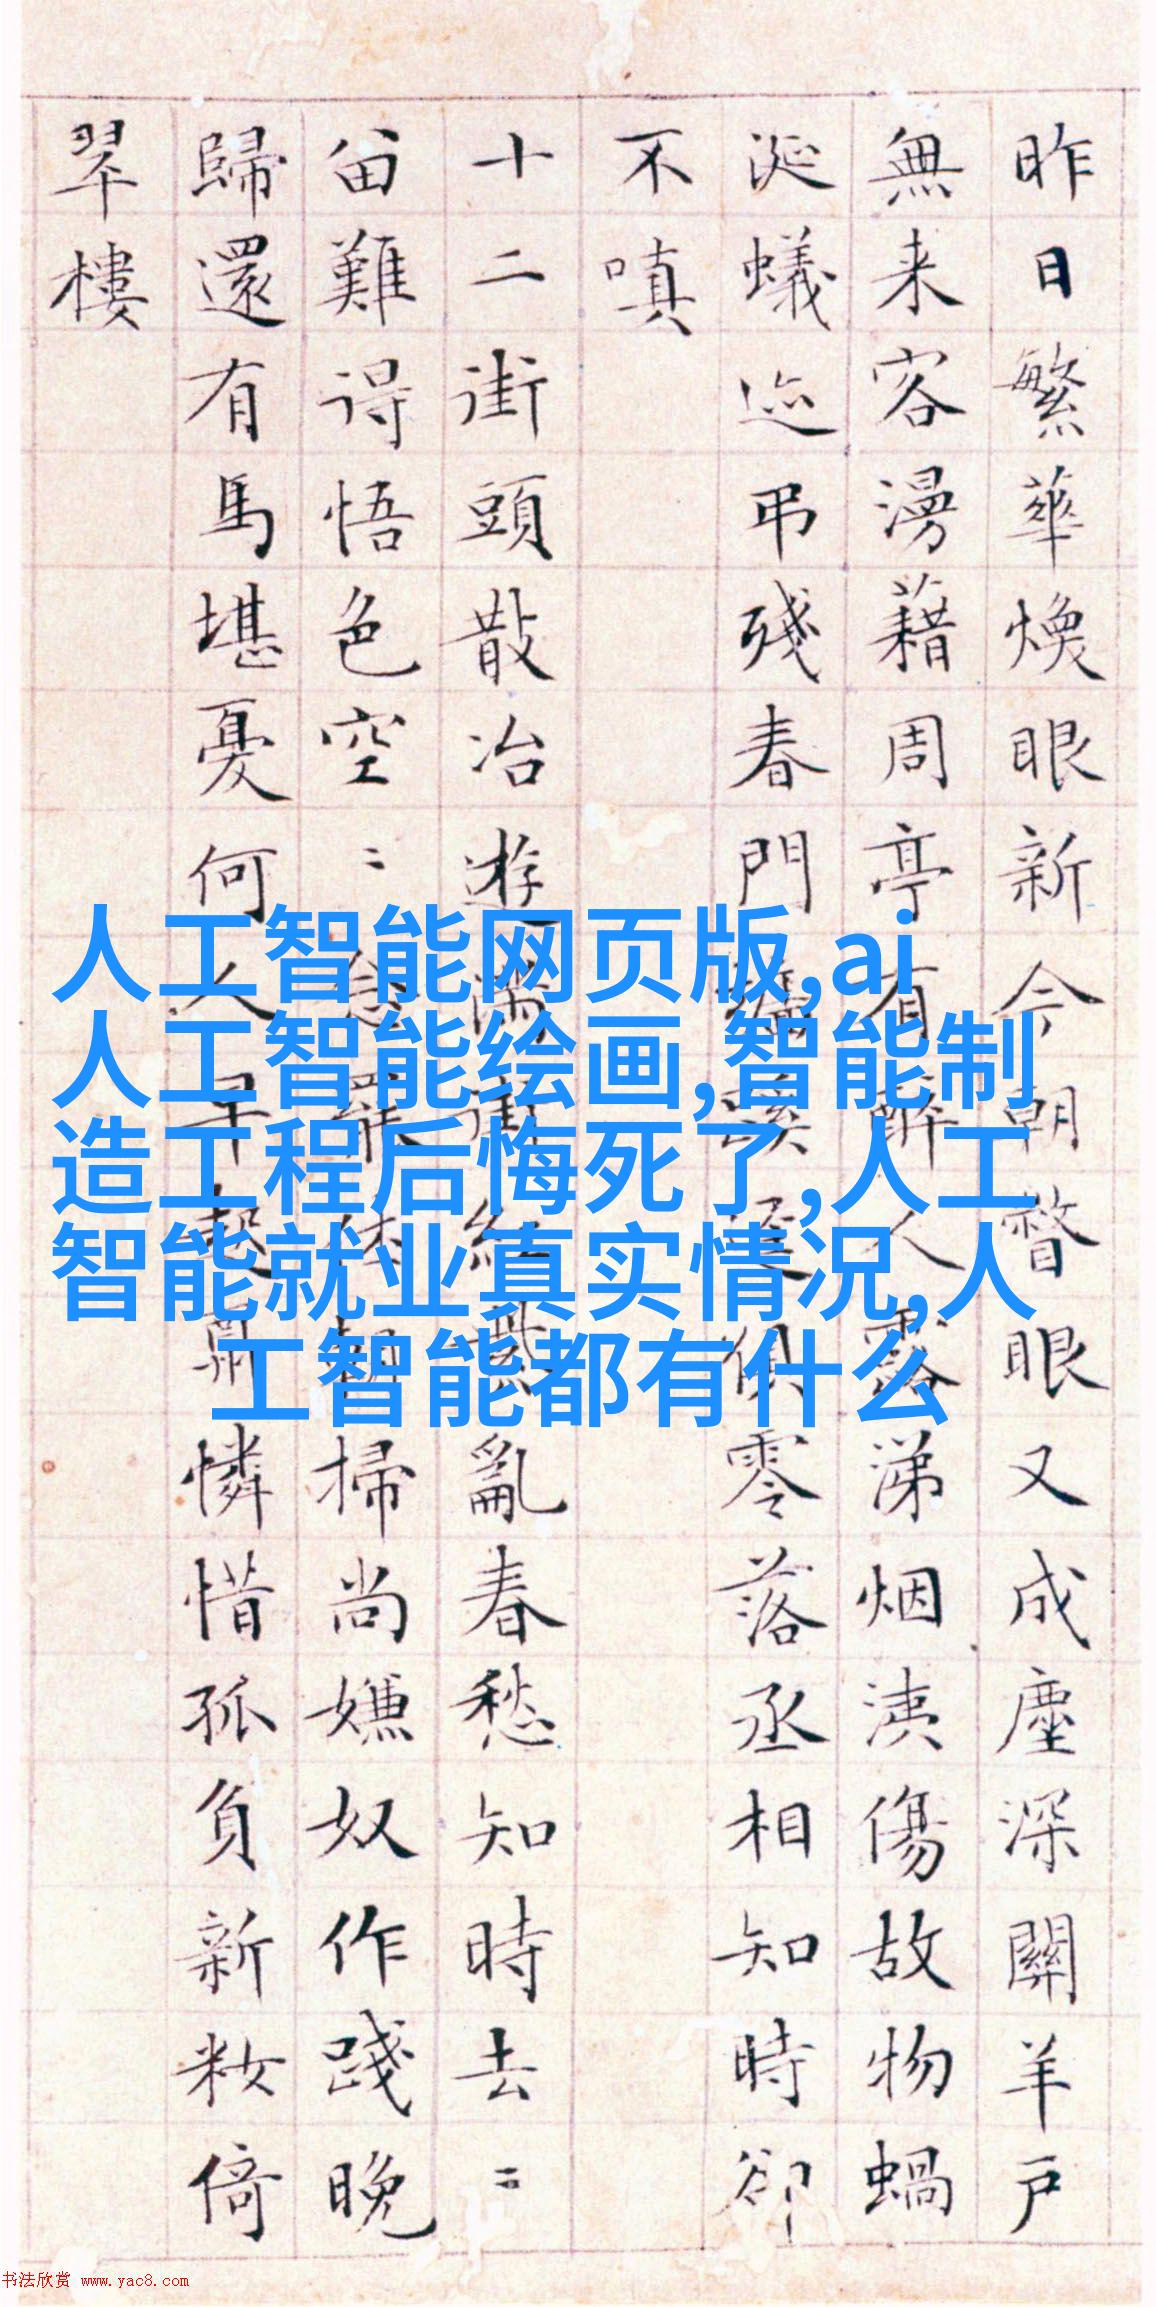 昨日繁華煥眼新今朝瞥眼又成塵深關羊戶
無来客漫藉周亭有醉人露涕烟洟傷故物蝸
涎蟻迹弔殘春門牆蹊逕俱零落丞相知時卻
不嗔
十二街頭散冶遊滿街紅紫亂春愁知時去〻
畄難得悟色空〻罷休朝掃尚嫌奴作踐晚
歸還有馬堪憂何人早起憐惜孤負新籹倚
翠樓
人工智能网页版,ai
人工智能绘画,智能制
造工程后悔死了,人工
智能就业真实情况,人
工智能都有什么
书法欣赏 www.yac8.com